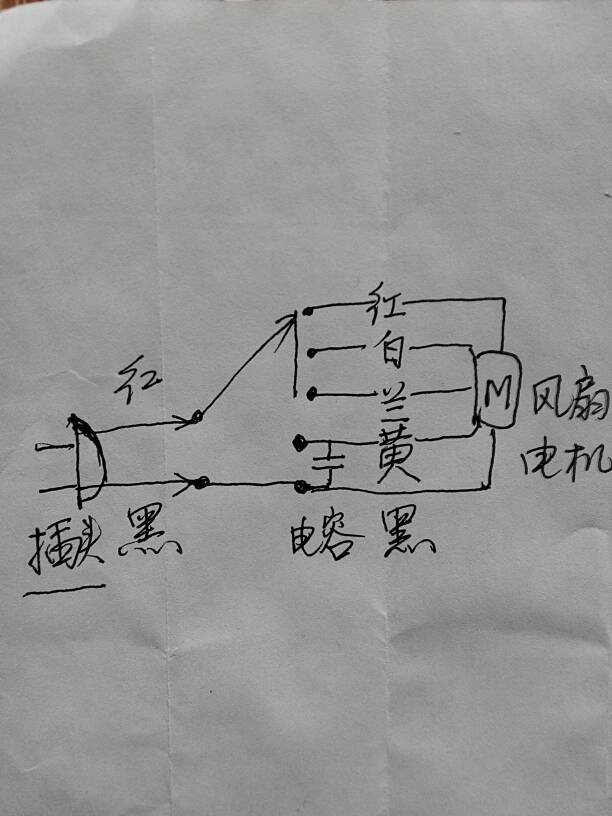 红
白
兰
黄
黑
红
黑
插头
电容
M
风扇
电机